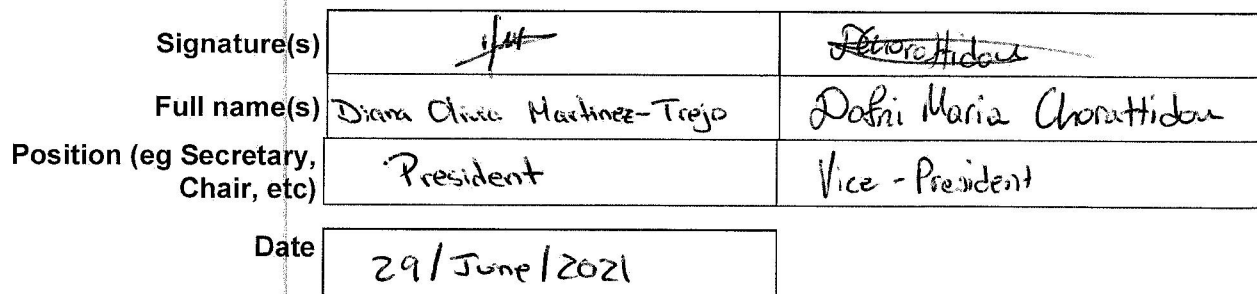 Signature(s)
Full name(s) Diana Olivia Martinez-Trejo Dafni Maria Chorattidou
Position (eg Secretary, President Vice-President
Chair, etc)
Date 29/June/2021